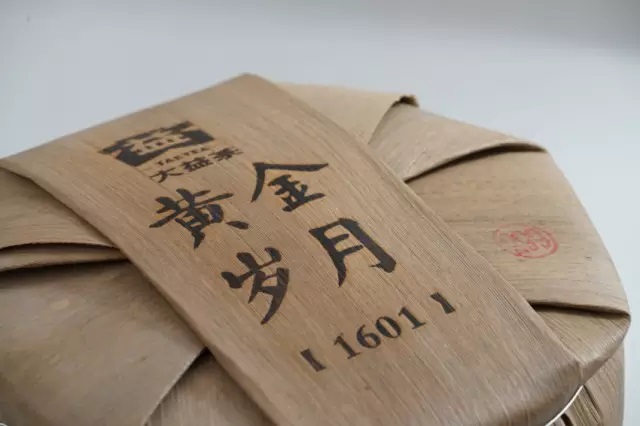 益
TAETEA
大益茶
黄金
岁月
【1601】